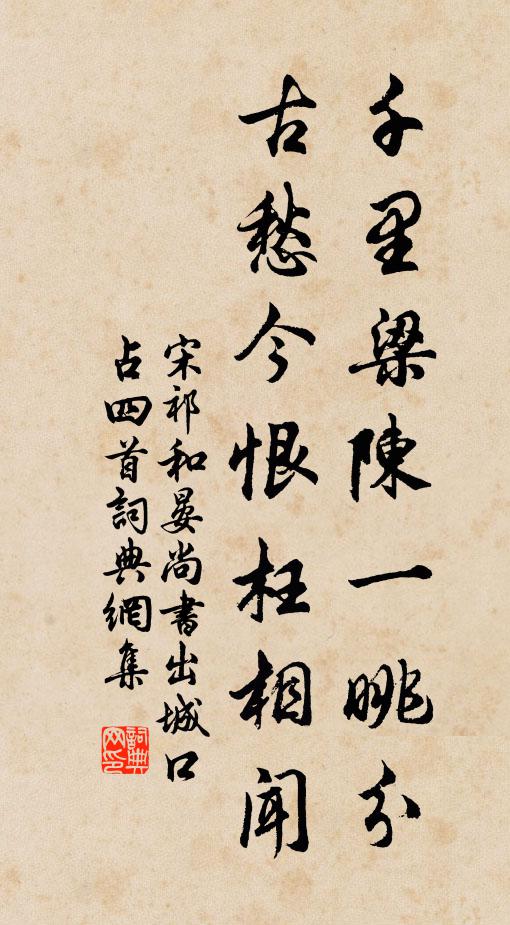 千里梁陳一眺分
古愁今恨枉相聞
宋祁和晏尚書出城口
占四首詞典網集
詞典
网印